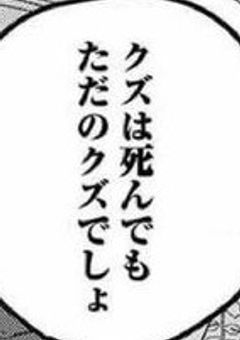 クズは死んでも
ただのクズでしょ